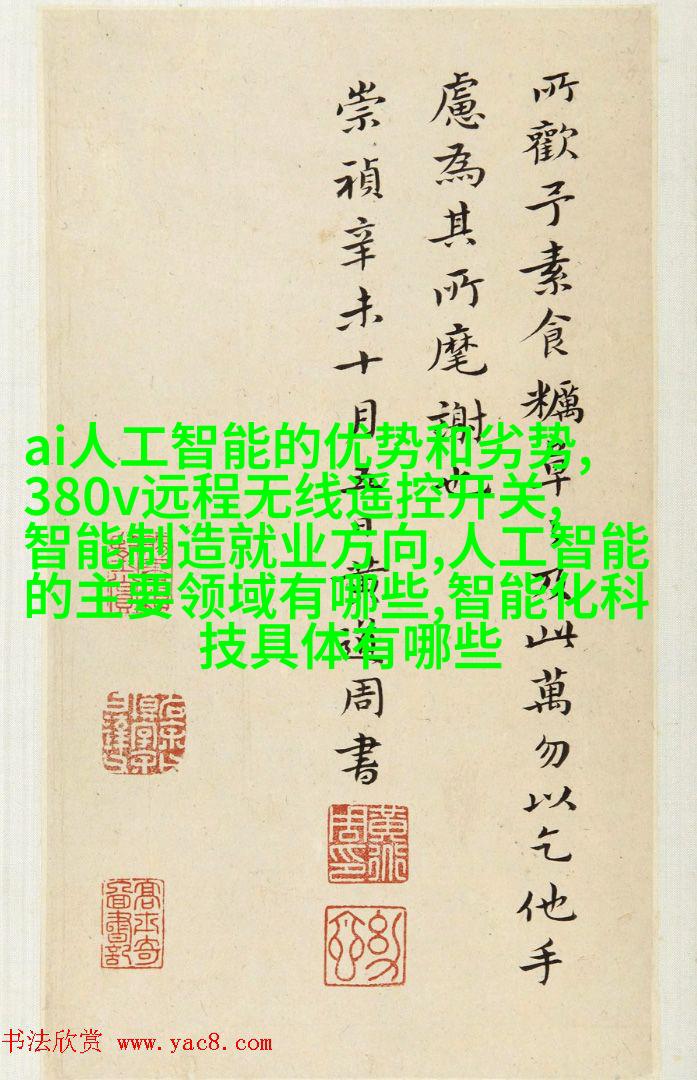 所歡予素食糲
此萬勿以乞他手
慮為其所麾謝也
崇禎辛未十月
黃道周書
ai人工智能的优势和劣势,
380v远程无线遥控开关,
智能制造就业方向,人工智能
的主要领域有哪些,智能化科
技具体有哪些
黃道周印
书法欣赏 www.yac8.com